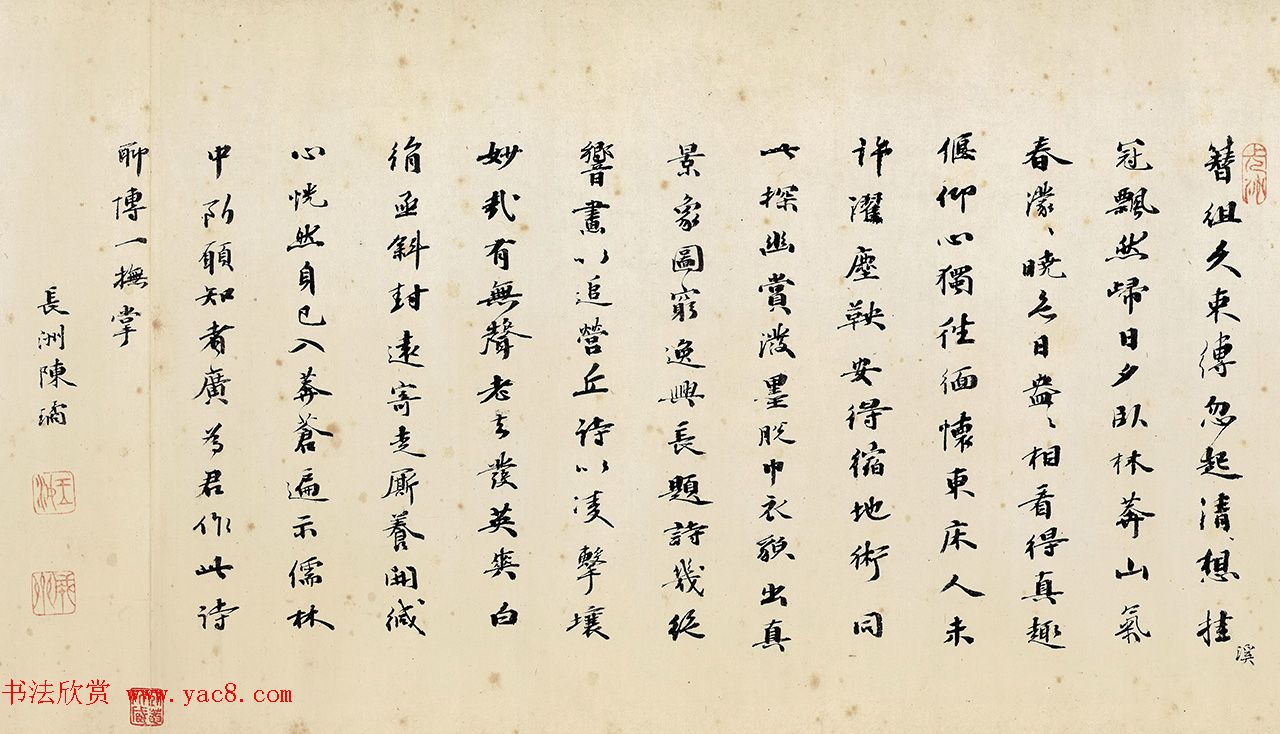 簪組久束縛忽起清想挂
溪
冠飄然歸日夕臥林莽山氣
春濛〻曉色日盎〻相看得真趣
偃仰心獨往緬懷東床人未
許濯塵鞅安得縮地術同
此探幽賞潑墨脫巾衣貌出真
景象圖窮逸興長題詩幾絕
響畫以追營丘詩以凌擊壤
妙哉有無聲老去發英爽白
絹亟斜封遠寄走廝養開緘
心恍然身已入莽蒼遍示儒林
中所願知者廣為君作此詩
聊博一撫掌
長洲陳璚
玉汝
书法欣赏 www.yac8.com